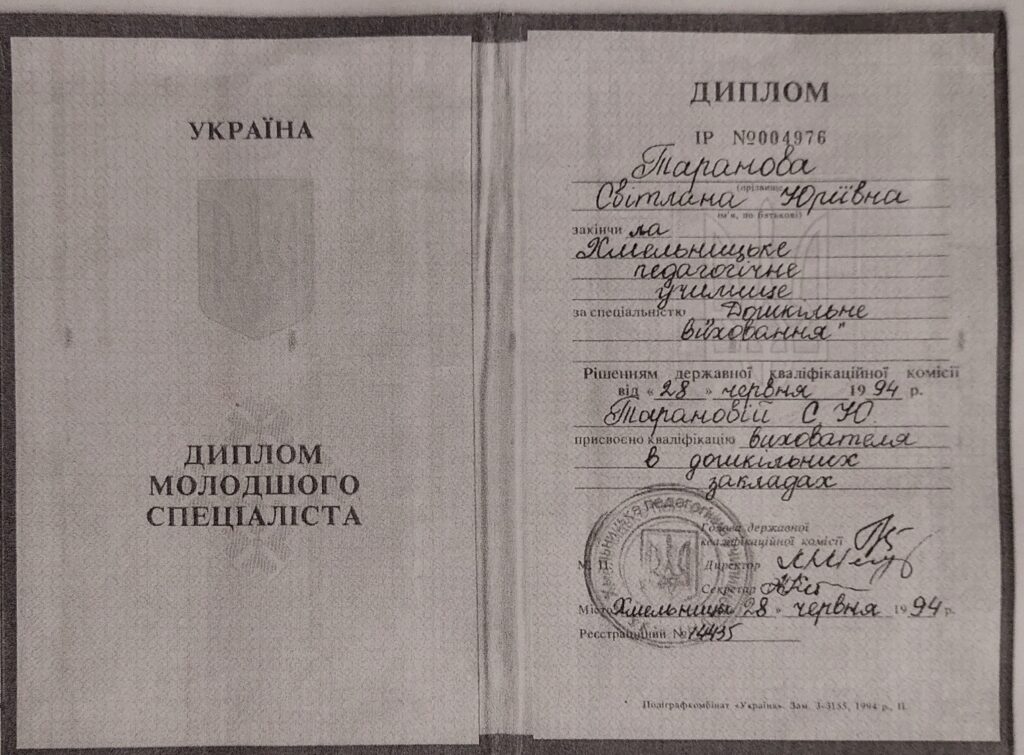 УКРАЇНА
ДИПЛОМ
МОЛОДШОГО
СПЕЦІАЛІСТА
ДИПЛОМ
ІР №004976
Таранова
(прізвище)
Світлана Юріївна
ім'я, по батькові)
закінчи ла
Хмельницьке
педагогічне
училище
за спеціальністю Дошкільне
виховання"
Рішенням державної кваліфікаційної комісії
від « 28 » червня 1994 р.
Тарановій С Ю.
присвоєно кваліфікацію вихователя
в дошкільних
закладах
Голова державної
кваліфікаційної комісії
М. П. Директор
Секретар
Місто Хмельницьк 28 » червня 1994 р.
Реєстраційний № 14435
Поліграфкомбінат «Україна». Зам. 3-3155, 1994 р., ІІ.